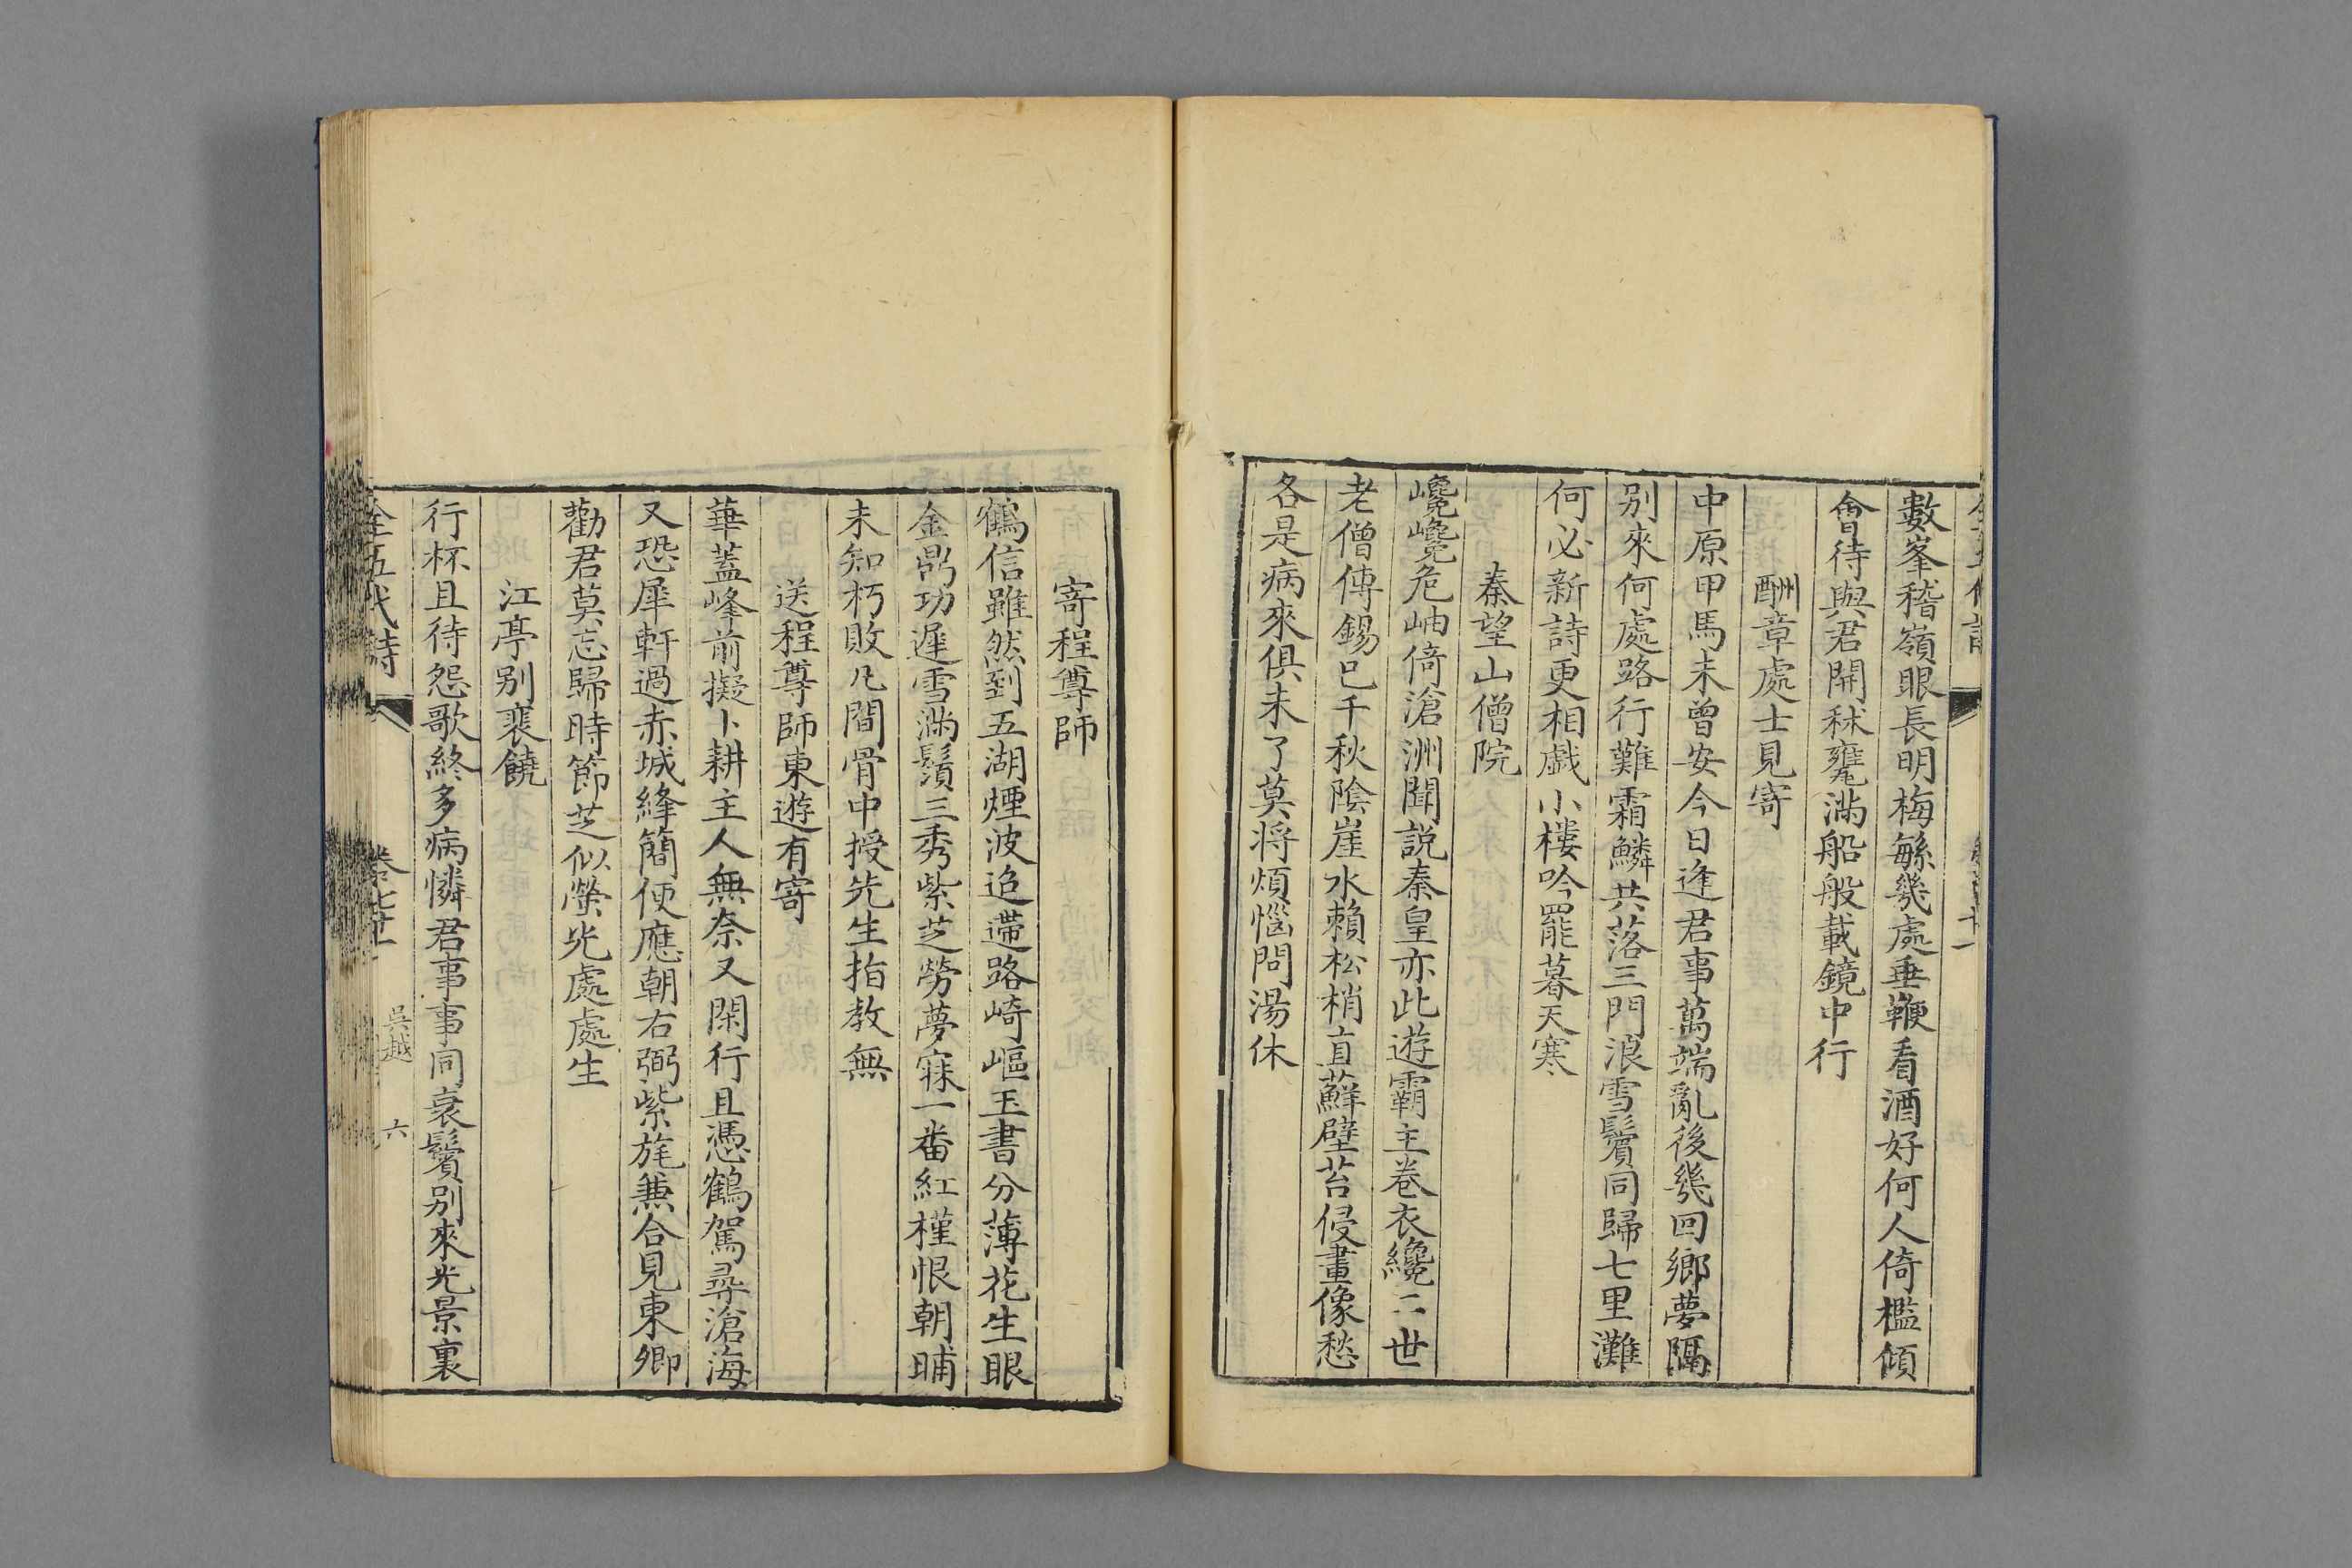 數峯稽嶺眼長明梅緐幾處垂鞭看酒好何人倚檻傾
會待與君開秫甕滿船般載鏡中行
酬章處士見寄
中原甲馬未曾安今日逢君事萬端亂後幾回鄉夢隔
别來何處路行難霜鱗共落三門浪雪鬢同歸七里灘
何必新詩更相戲小樓吟罷暮天寒
秦望山僧院
巉巉危岫倚滄洲聞説秦皇亦此遊霸主卷衣纔二世
老僧傳錫已千秋陰崖水賴松梢直蘚壁苔侵畫像愁
各是病來俱未了莫將煩惱問湯休
寄程尊師
鶴信雖然到五湖煙波迢遰路崎嶇玉書分薄花生眼
金鼎功遲雪滿鬚三秀紫芝勞夢寐一番紅槿恨朝晡
未知朽敗凡間骨中授先生指教無
送程尊師東遊有寄
華蓋峰前擬卜耕主人無奈又閑行且憑鶴駕尋滄海
又恐犀軒過赤城絳簡便應朝右弼紫旄兼合見東卿
勸君莫忘歸時節芝似螢光處處生
江亭别裴饒
行杯且待怨歌終多病憐君事事同衰鬢别來光景裏
全五代詩 卷七十一 吳越 六